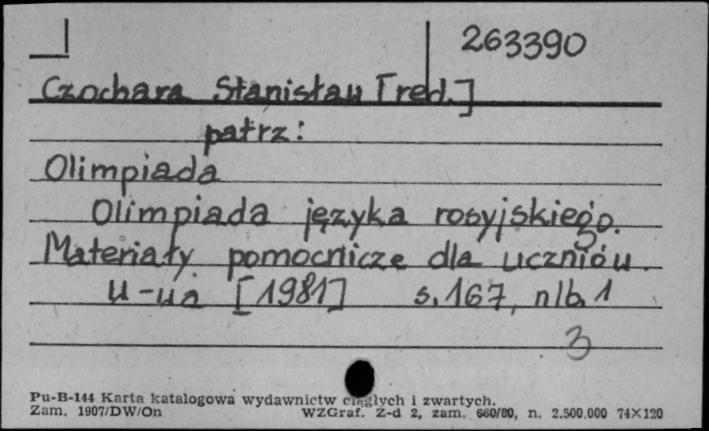 263390
Czochara Stanisław [red.]
patrz:
Olimpiada
Olimpiada języka rosyjskiego.
Materiały pomocnicze dla uczniów.
W-wa [1981] s. 167, nlb. 1
3
Pu-B-144 Karta katalogowa wydawnictw ciągłych i zwartych.
Zam. 1907/DW/On WZGraf. Z-d 2, zam. 660/80, n. 2.500.000 74×120